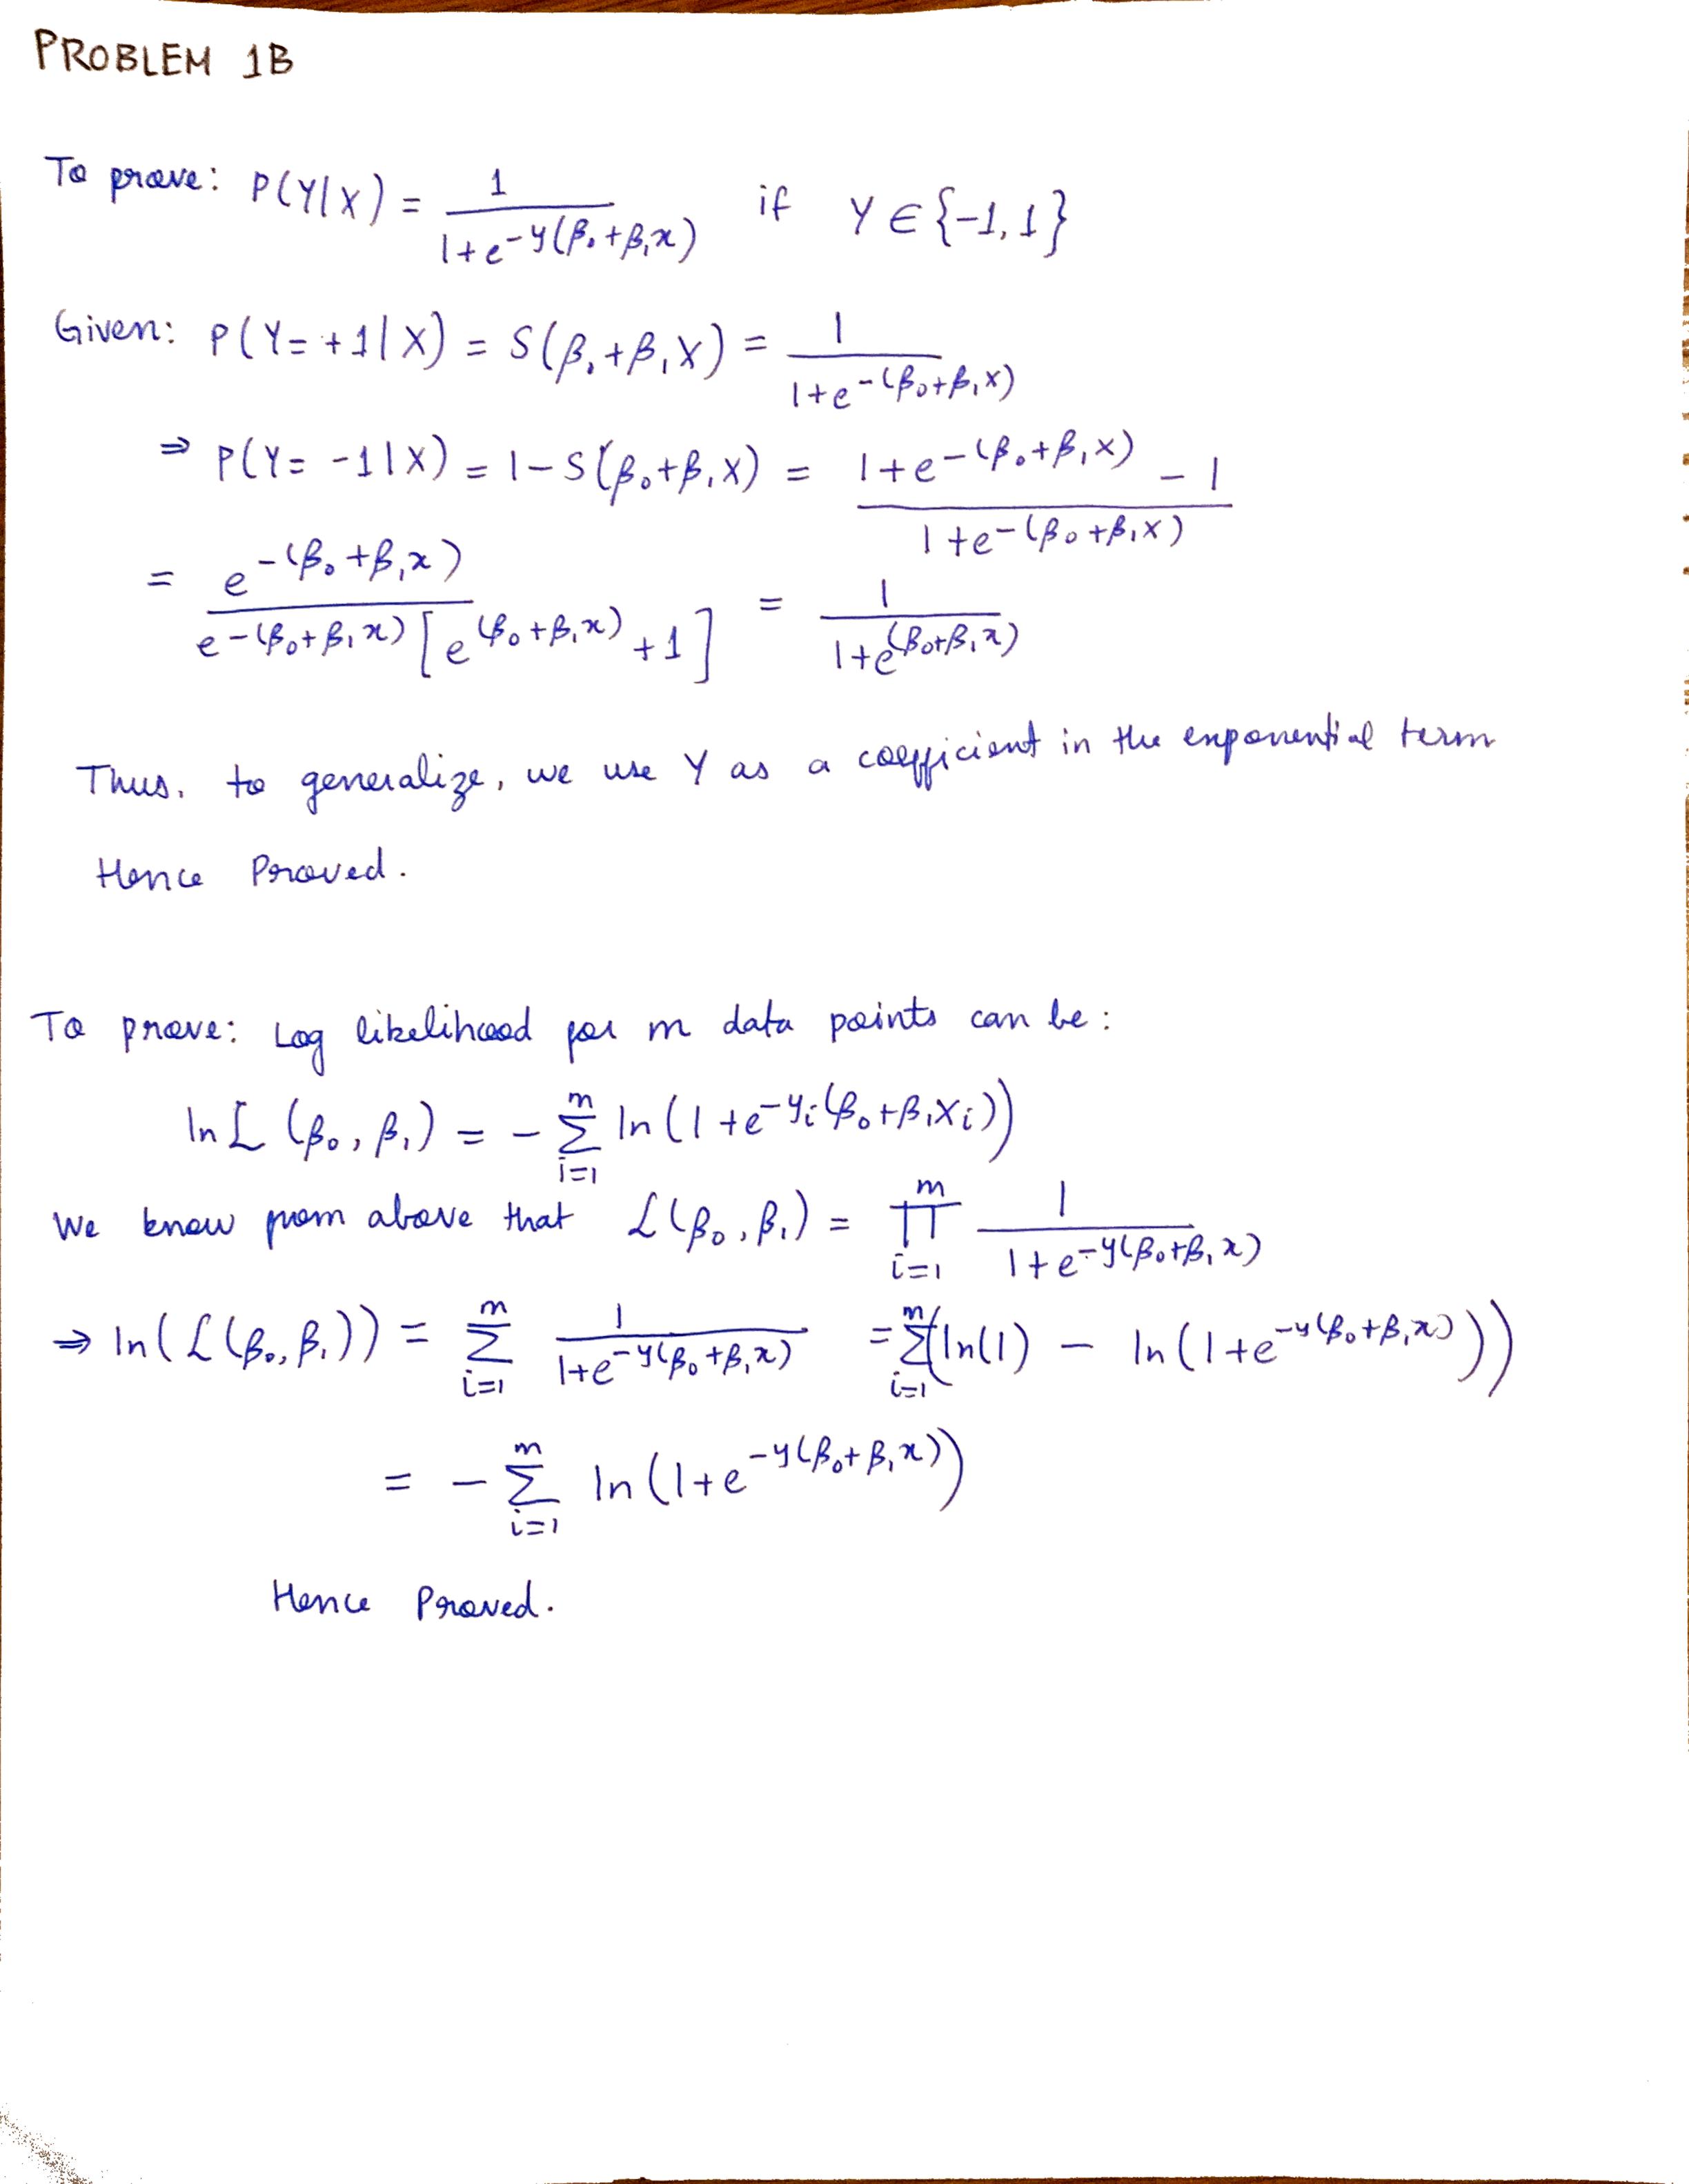 PROBLEM 1B
To prove: P(Y|X) = 1 / (1+e^{-y(β₀+β₁x)}) if Y ∈ {-1, 1}
Given: P(Y= +1|X) = S(β₀+β₁X) = 1 / (1+e^{-(β₀+β₁X)})
⇒ P(Y= -1|X) = 1-S(β₀+β₁X) = (1+e^{-(β₀+β₁X)} - 1) / (1+e^{-(β₀+β₁X)})
= e^{-(β₀+β₁x)} / (e^{-(β₀+β₁x)} [e^{(β₀+β₁x)} +1]) = 1 / (1+e^{(β₀+β₁x)})
Thus, to generalize, we use Y as a coefficient in the exponential term
Hence Proved.
To prove: Log likelihood for m data points can be:
ln L (β₀, β₁) = - Σ_{i=1}^{m} ln(1+e^{-y_i(β₀+β₁X_i)})
We know from above that L(β₀, β₁) = Π_{i=1}^{m} 1 / (1+e^{-y(β₀+β₁x)})
⇒ ln(L(β₀, β₁)) = Σ_{i=1}^{m} 1 / (1+e^{-y(β₀+β₁x)}) = Σ_{i=1}^{m} (ln(1) - ln(1+e^{-y(β₀+β₁x)}))
= - Σ_{i=1}^{m} ln(1+e^{-y(β₀+β₁x)})
Hence Proved.